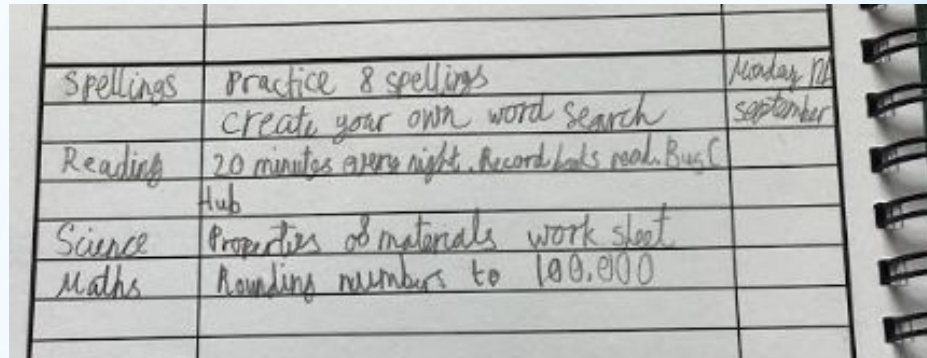 Spellings Practice 8 spellings Monday
create your own word search september
Reading 20 minutes every night. Record books read. Bug C
Hub
Science Properties of materials work sheet
Maths Rounding numbers to 100.000